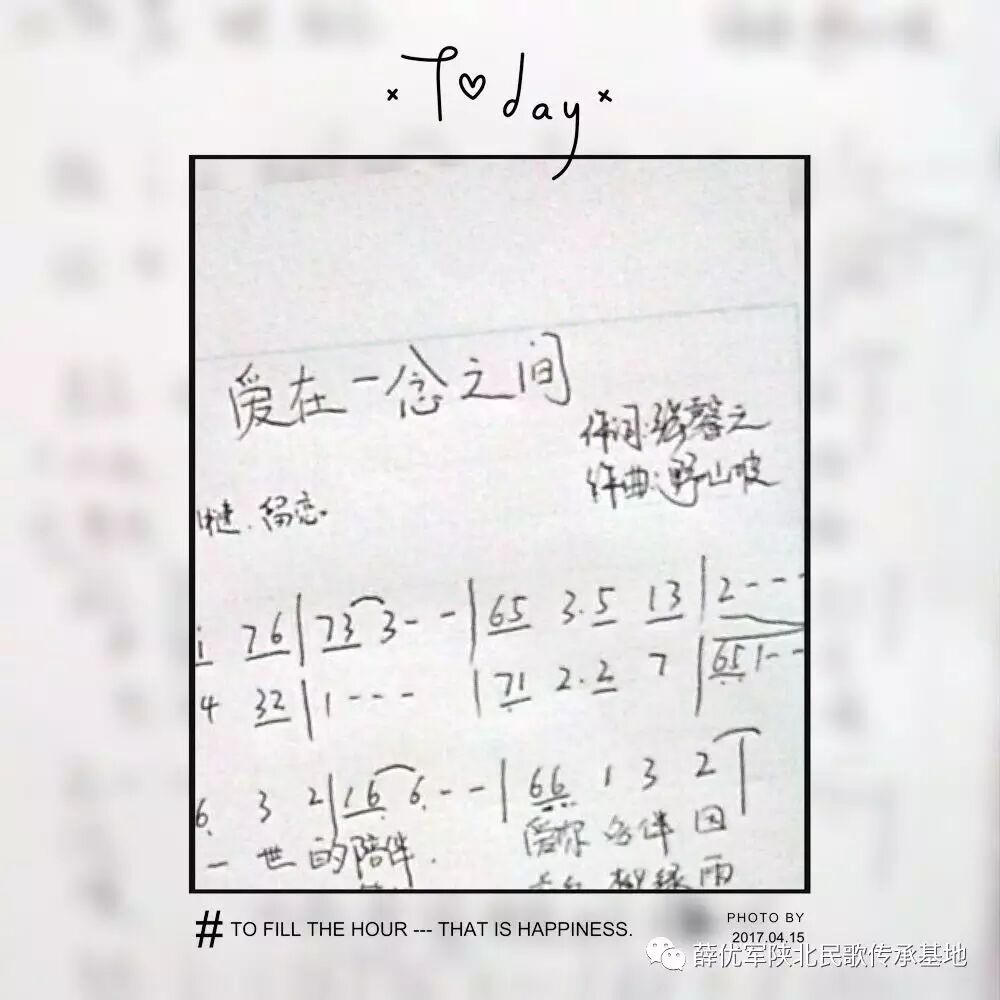 Today
爱在一念之间
作词:张馨之
作曲:野山坡
留恋
i 76 | 73 3 - - | 65 3.5 13 | 2 - - -
4 32 | 1 - - - | 71 2.2 7 | 651 - -
6 3 2 | 16 6 - - | 66 1 3 2 |
一世的陪伴. 爱你 伴因
雨
# TO FILL THE HOUR --- THAT IS HAPPINESS.
PHOTO BY
2017.04.15
薛优军陕北民歌传承基地